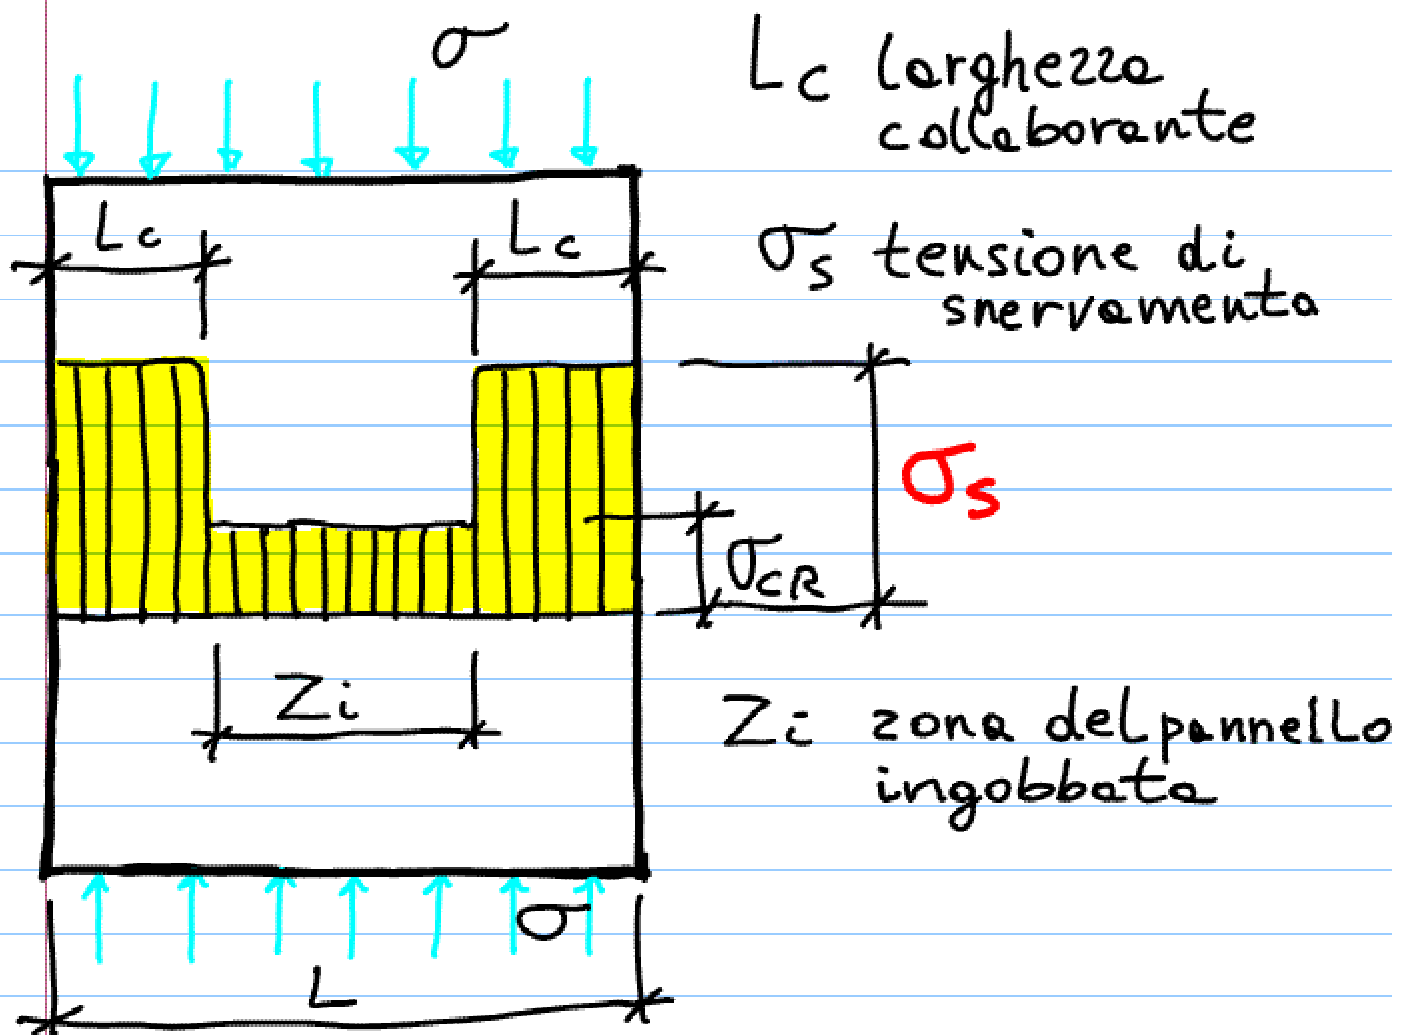 σ
Lc larghezza
collaborante
Lc
Lc
σs tensione di
snervamento
σs
σCR
Zi
Zi zona del pannello
ingobbata
σ
L